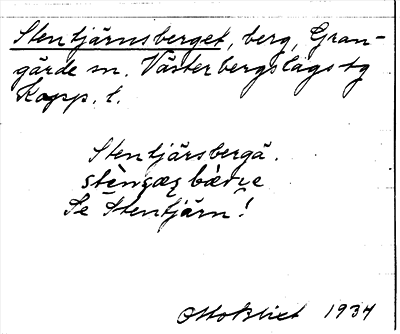 Stentjärnsberget, berg, Gran-
gärde sn. Västerbergslags tg
Kopp. l.
Stentjärsbergä.
Se Stentjärn!
Otto Blixt 1934